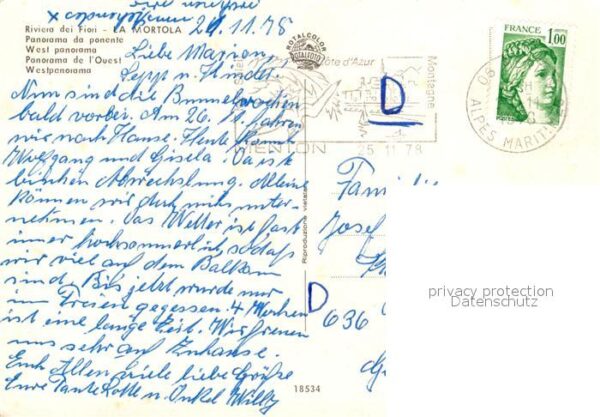 24.11.78
Riviera dei Fiori - LA MORTOLA
Panorama da ponente
West panorama
Panorama de l'Ouest
Westpanorama
Liebe Marion,
Sepp u. Kinder.
Nun sind die Bummelwochen
bald vorbei. Am 26.11. fahren
wir nach Hause. Heute kommt
Wolfgang und Gisela. Da ist
bischen Abwechslung. Alleine
können wir auch nichts unter-
nehmen. Das Wetter ist fast
immer hochsommerlich, sodaß
wir viel auf dem Balkon
sind. Bis jetzt wurde nur
im Freien gegessen. 4 Wochen
ist eine lange Zeit. Wir freuen
uns sehr auf Zuhause.
Euch Allen viele liebe Grüße
Eure Tante Lotte u. Onkel Willy
ROTALCOLOR
ROTALFOTO
Côte d'Azur
Montagne
MENTON
25.11.78
D
FRANCE
1,00
POSTES
06
ALPES MARIT
Riproduzione vietata
Fami
Josef
D
636
18534
privacy protection
Datenschutz